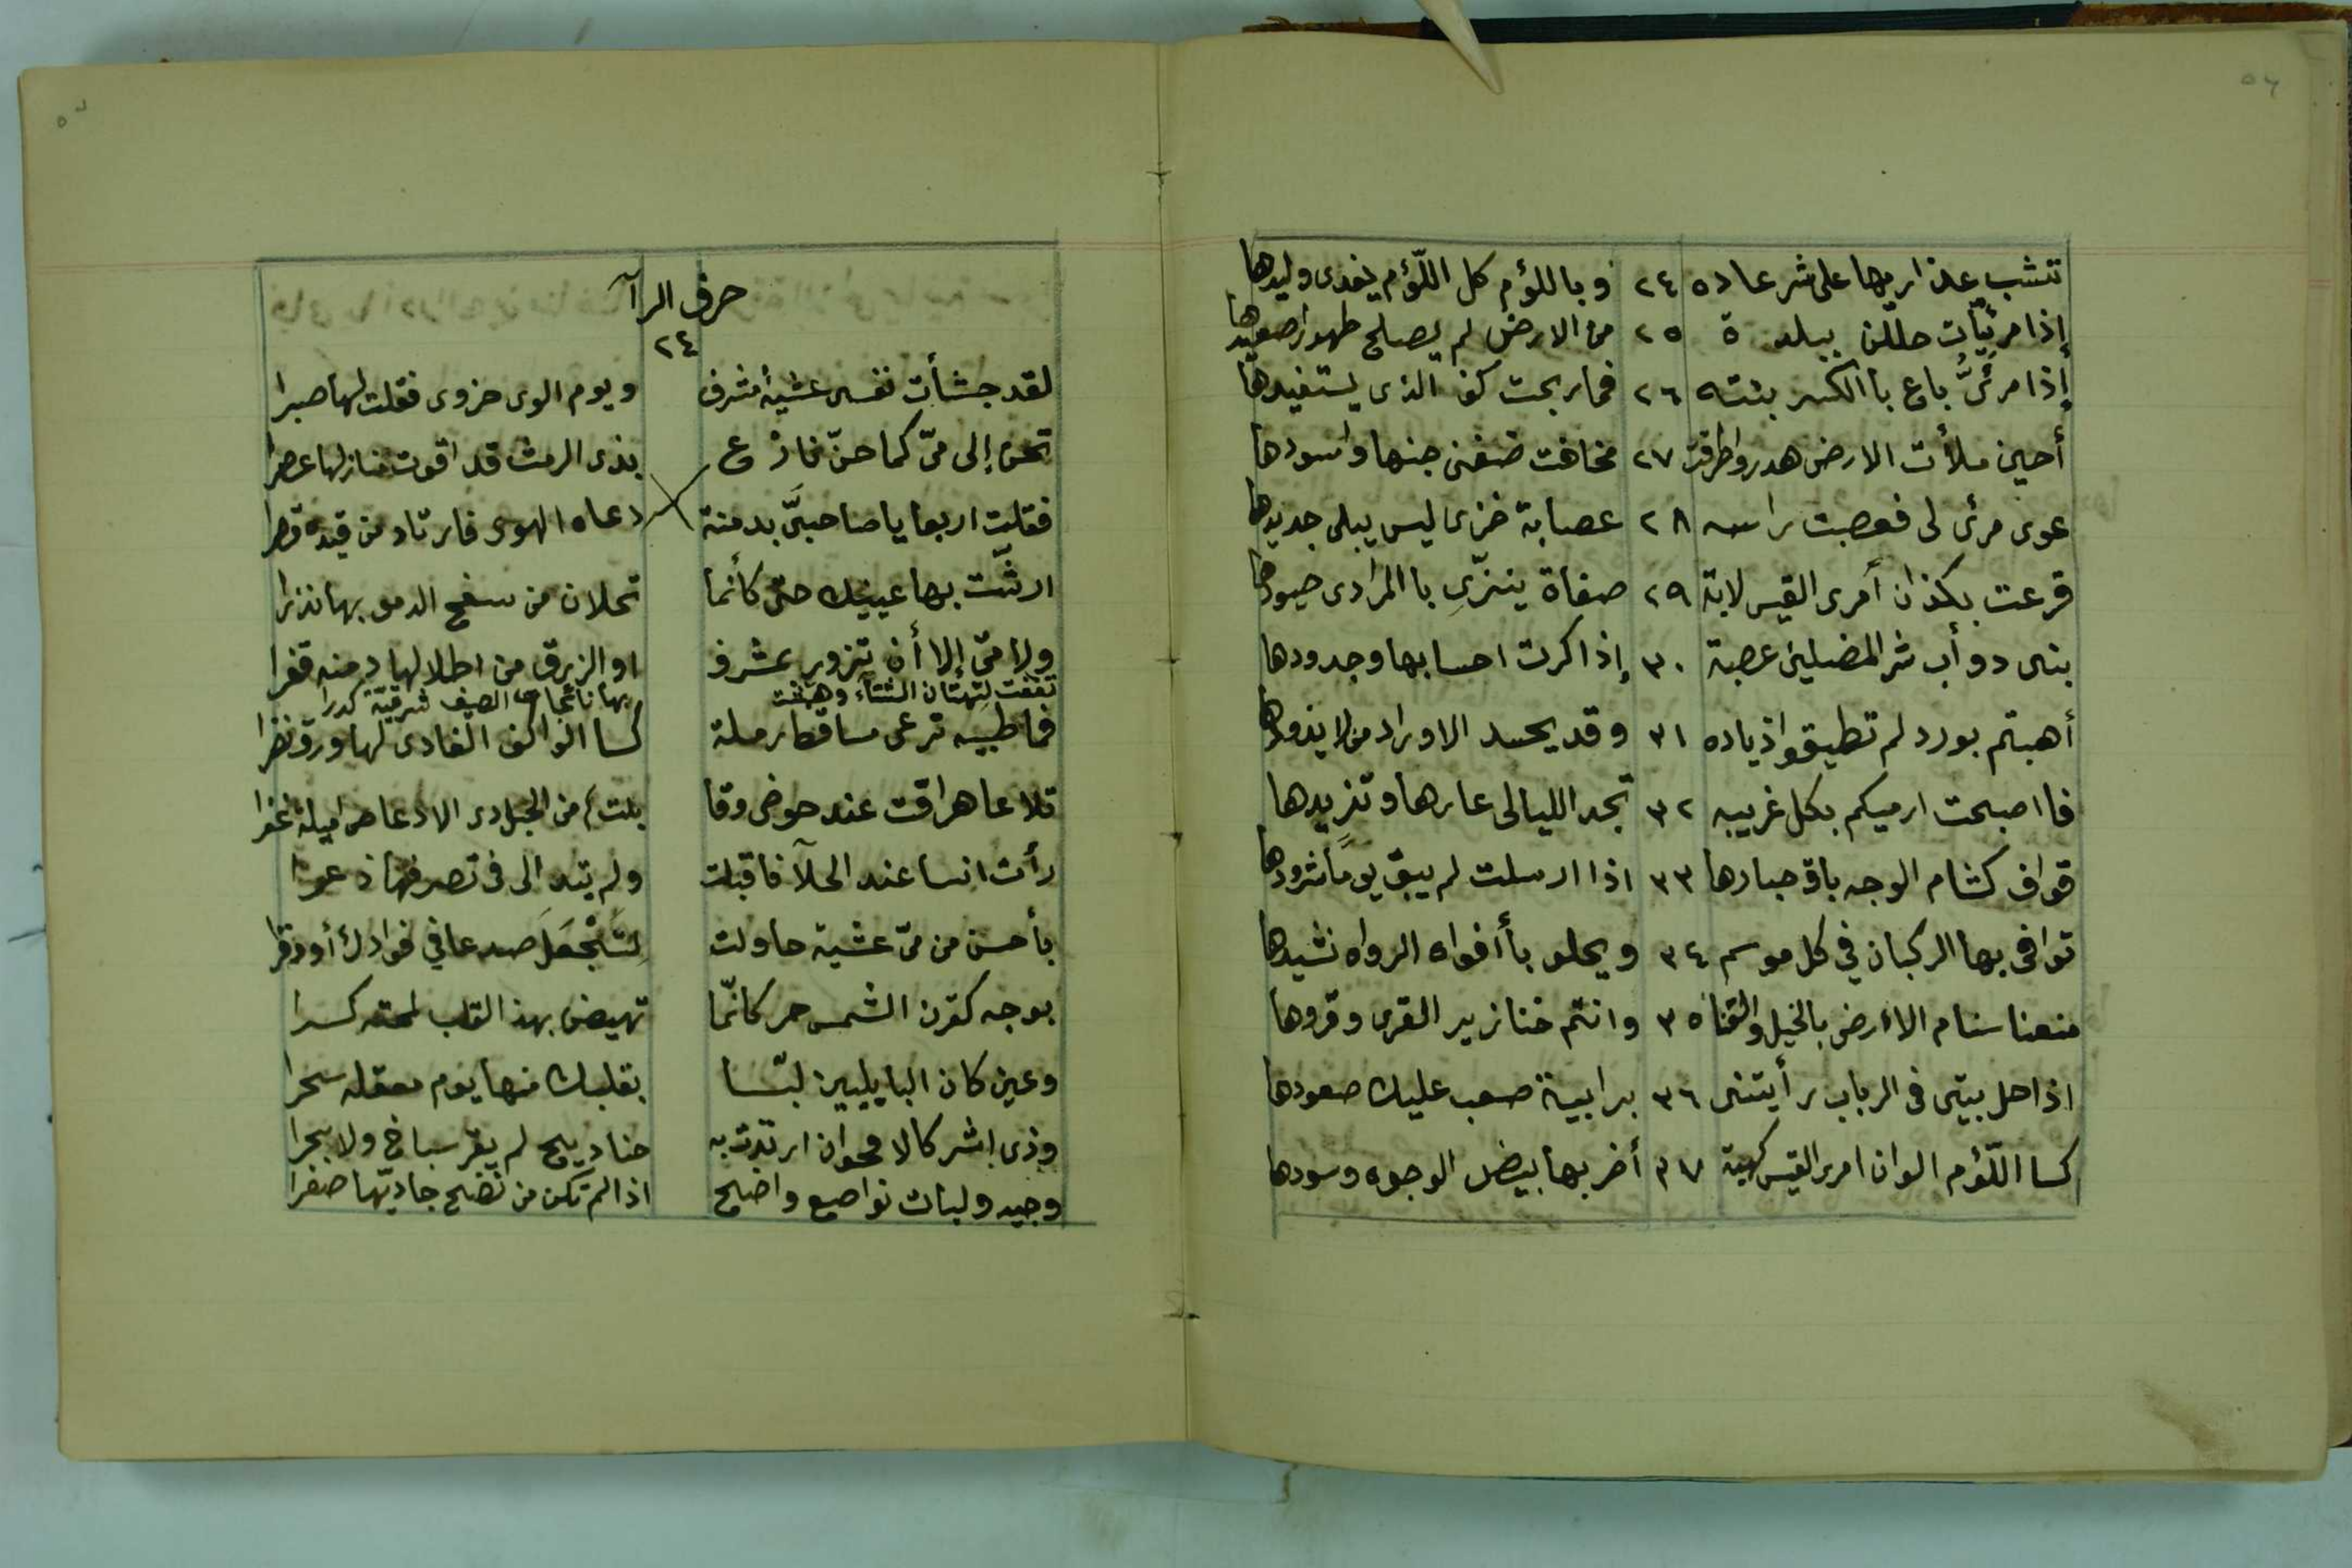 ٥٦
تنشب عذاريها على شر عاده ٢٤ وباللؤم كل اللّؤم يغذى وليدها
إذا مرئيّات حللن ببلدة ٢٥ من الارض لم يصلح طهورا صعيدها
إذا مرئىُّ باع باالكسر بنته ٢٦ فما ربحت كف الذى يستفيدها
أحين ملأت الارض هدرو اطرقت ٢٧ مخافت ضغنى جنها واسودها
عوى مرئى لى فعصبت راسه ٢٨ عصابة خزى ليس يبلى جديدها
قرعت بكذان أمرى القيس لابة ٢٩ صفاة ينزّى باالمرادى حيودها
بنى دوأب شر المضلين عصبة ٣٠ إذا كرت احسابها وجدودها
أهبتم بورد لم تطيقوا ذياده ٣١ وقد يحسد الاوراد من لا يذودها
فااصبحت ارميكم بكل غريبه ٣٢ تجد الليالى عارها وتزيدها
قواف كشام الوجه باق حبارها ٣٣ اذا ارسلت لم يبق يوماً شرودها
توافى بها الركبان في كل موسم ٣٤ ويحلو بأأفواه الرواه نشيدها
منعنا سنام الاءرض بالخيل والقنا ٣٥ وانتم خنازير القرى وقرودها
اذا حل بيتى فى الرباب رأيتنى ٣٦ برابية صعب عليك صعودها
كسا اللّؤم الوان امرى القيس كهبة ٣٧ أضر بها بيض الوجوه وسودها
حرف الرآ
٢٤
لقد جشأت نفسى عشية مشرف ويوم الوى حزوى فقلت لها صبرا
تحن إلى مىّ كما حنّ نازع بذى الرمث قد اقوت منازلها عصرا
فقلت اربعا يا صاحبىَّ بدمنة دعاه الهوى فارتاد من قيده قصرا
ارشّت بها عينيك حتى كأنما تحلان من سفح الدموع بها نذرا
ولا مىّ إلا أن تزور بمشرف او الزرق من اطلالها دمنه قفرا
تعفت لتهتان الشتآء وهيفت بها نائجات الصيف شرقيّة كدرا
فما ظبيه ترعى مساقط رملة كسا الواكف الغادى لها ورقا نضرا
تلاعا هراقت عند حوضى وقا بلت من الحبل دى الادعاص اميلة عفرا
رأت انسا عند الحلآ فاقبلت ولم يتد الى فى تصرفها ذعرا
بأحسن من مىّ عشية حاولت لِتَجْعَلَ صدعا في فوادك أو وقرا
بوجه كقرن الشمس حر كانّما تهيض بهذ القلب لمحته كسرا
وعين كان البابليين لبّسا بقلبك منها يوم معقله سحرا
وذى اشر كالاقحوان ارتدت به حناديج لم يقرب سباخ ولا بحرا
وجيد ولبات نواصع واضح اذا لم تكن من نضح جاديّها صفرا